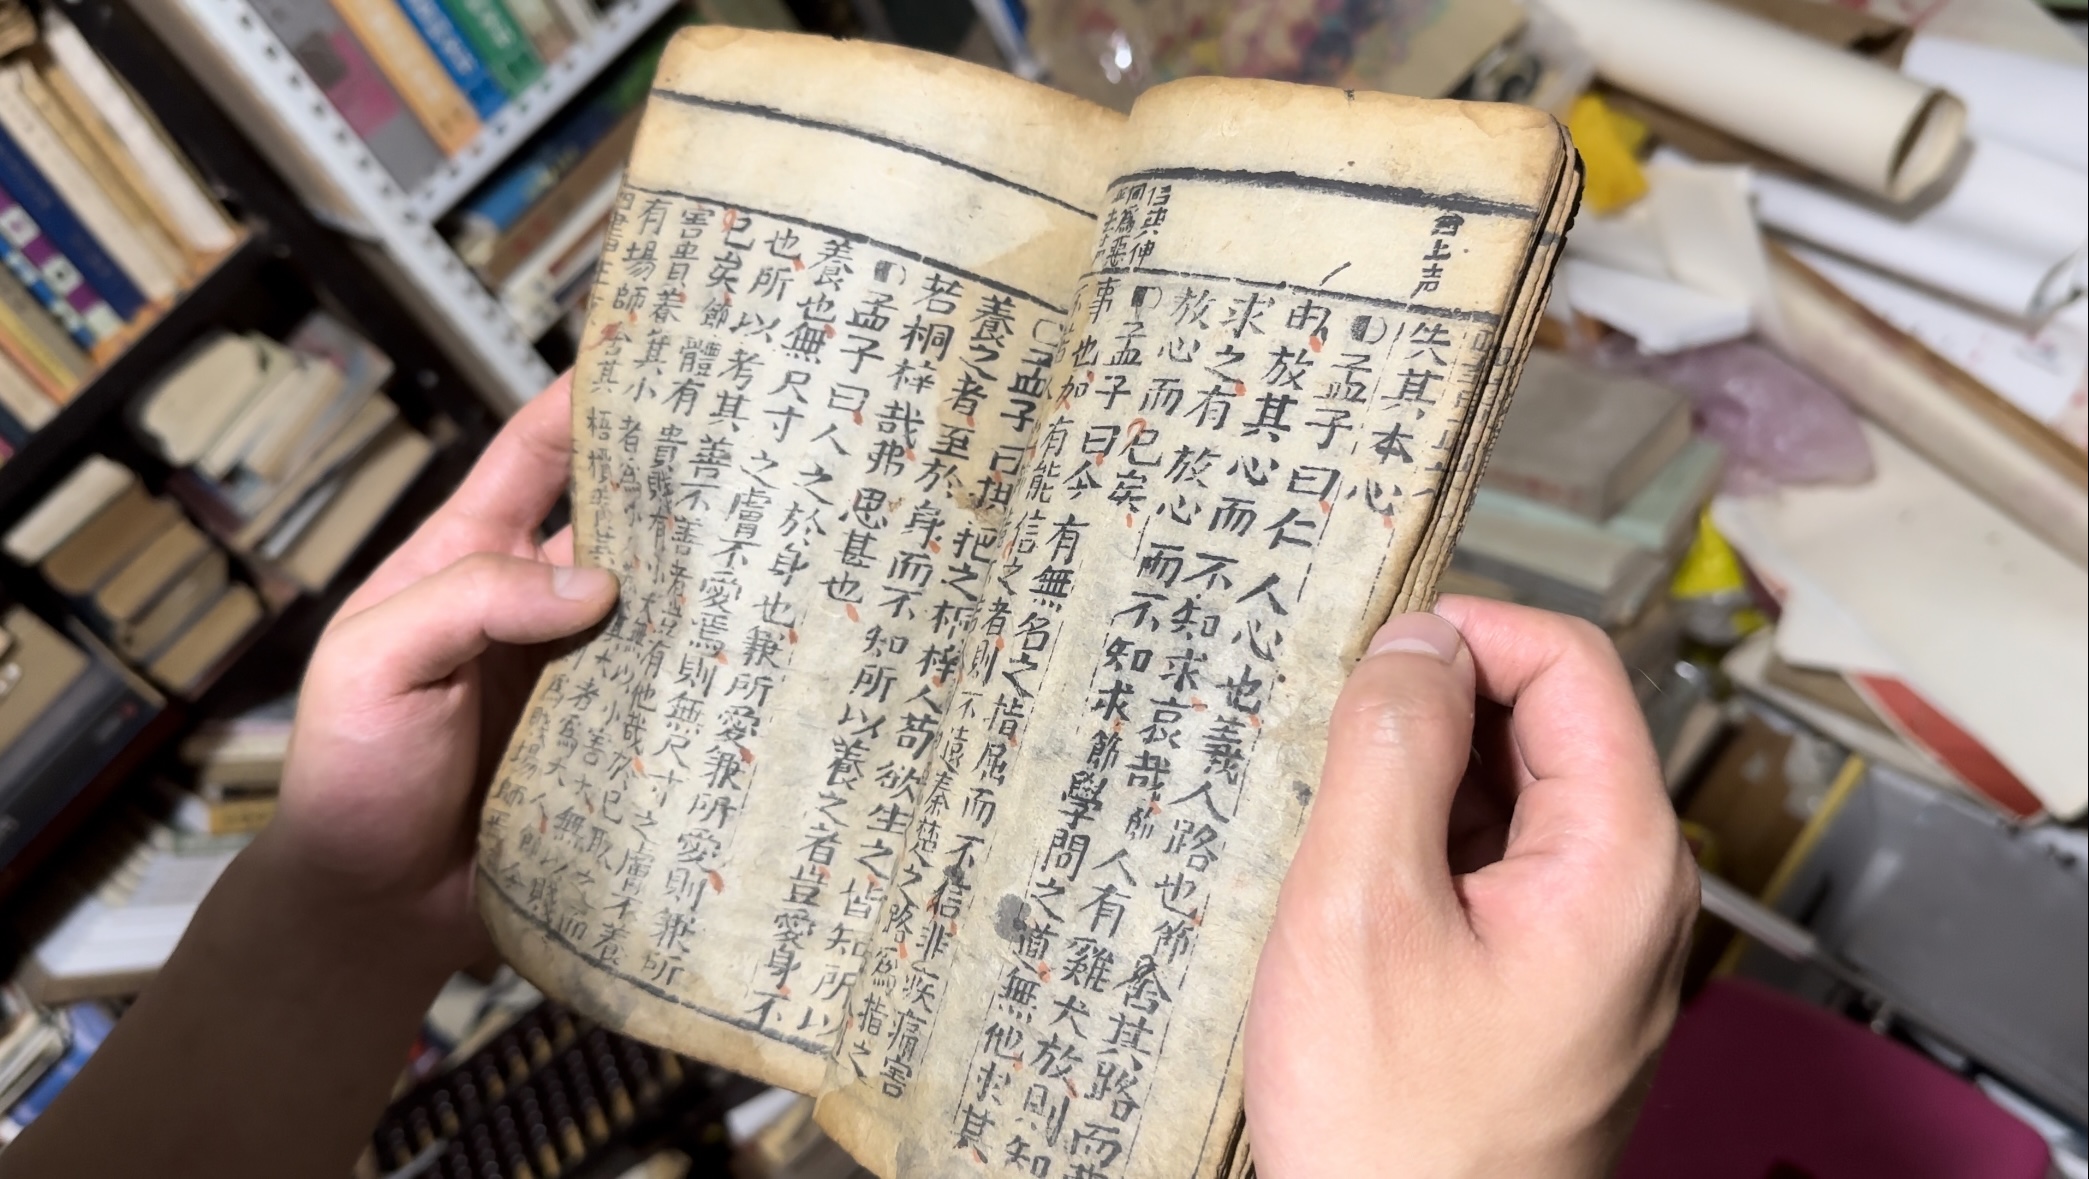 舍上声
信與伸
同爲惡
失其本心
孟子曰仁人心也義人路也節舍其路而弗
由放其心而不知求哀哉節人有雞犬放則知
求之有放心而不知求節學問之道無他求其
放心而已矣
孟子曰今有無名之指屈而不信非疾痛害
事也如有能信之者則不遠秦楚之路爲指之
孟子曰拱把之桐梓人苟欲生之皆知所以
養之者至於身而不知所以養之者豈愛身不
若桐梓哉弗思甚也
孟子曰人之於身也兼所愛兼所愛則兼所
養也無尺寸之膚不愛焉則無尺寸之膚不養
也所以考其善不善者豈有他哉於己取之而
已矣節體有貴賤有小大無以小害大無以賤
害貴養其小者爲小人養其大者爲大人節
有場師舍其梧檟養其則爲賤場師